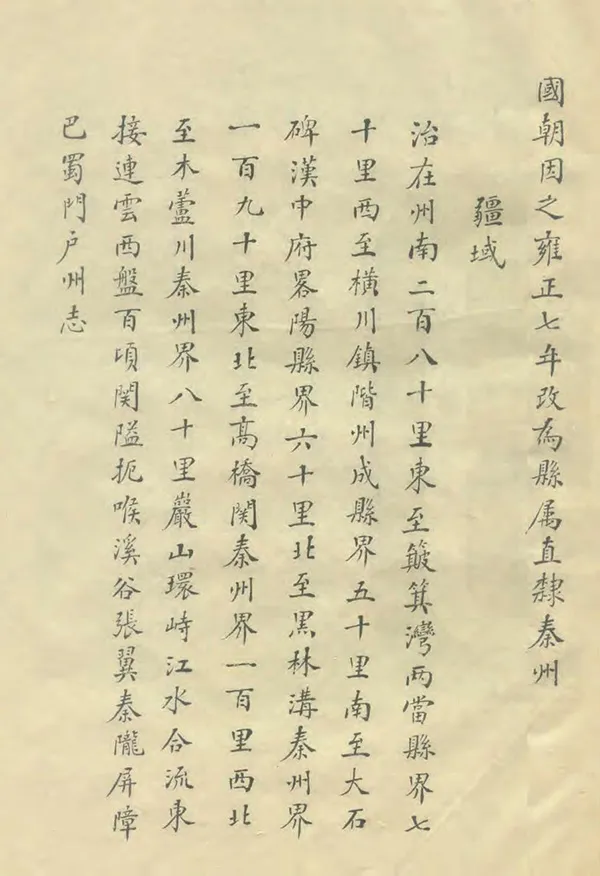 國朝因之雍正七年改為縣属直隸秦州
疆域
治在州南二百八十里東至簸箕灣两當縣界七
十里西至橫川鎮階州成縣界五十里南至大石
碑漢中府畧陽縣界六十里北至黑林溝秦州界
一百九十里東北至高橋関秦州界一百里西北
至木蘆川秦州界八十里巖山環峙江水合流東
接連雲西盤百頃関隘扼喉溪谷張翼秦隴屏障
巴蜀門户州志